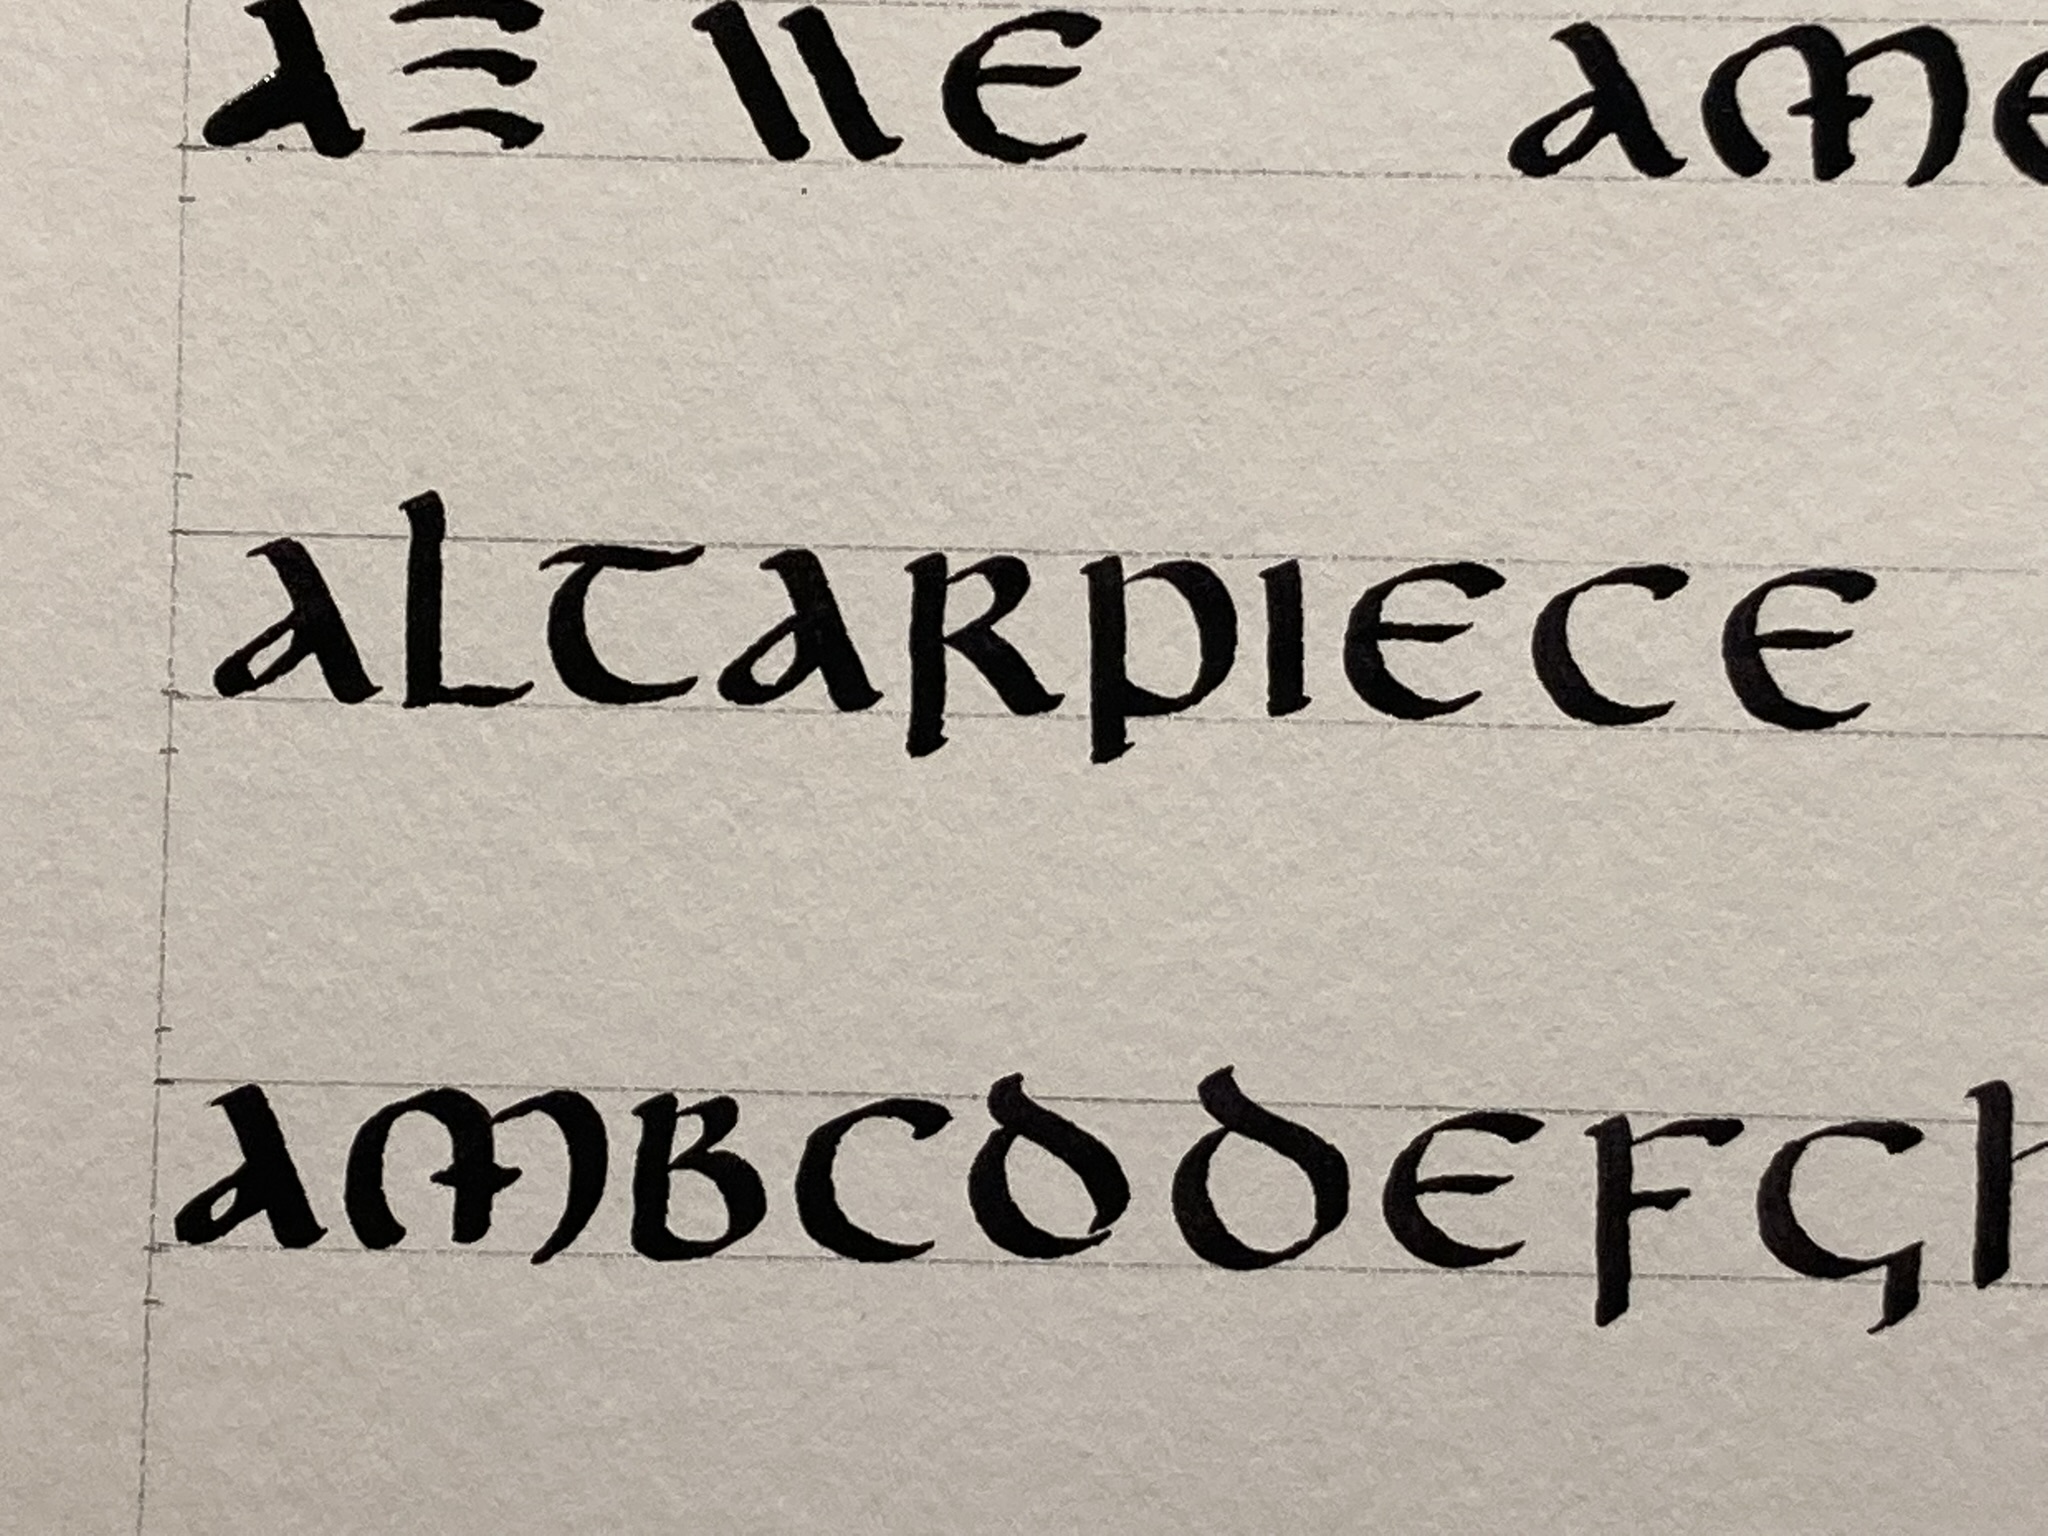 A E AME
ALTARPIECE
AMBCDDEFGh